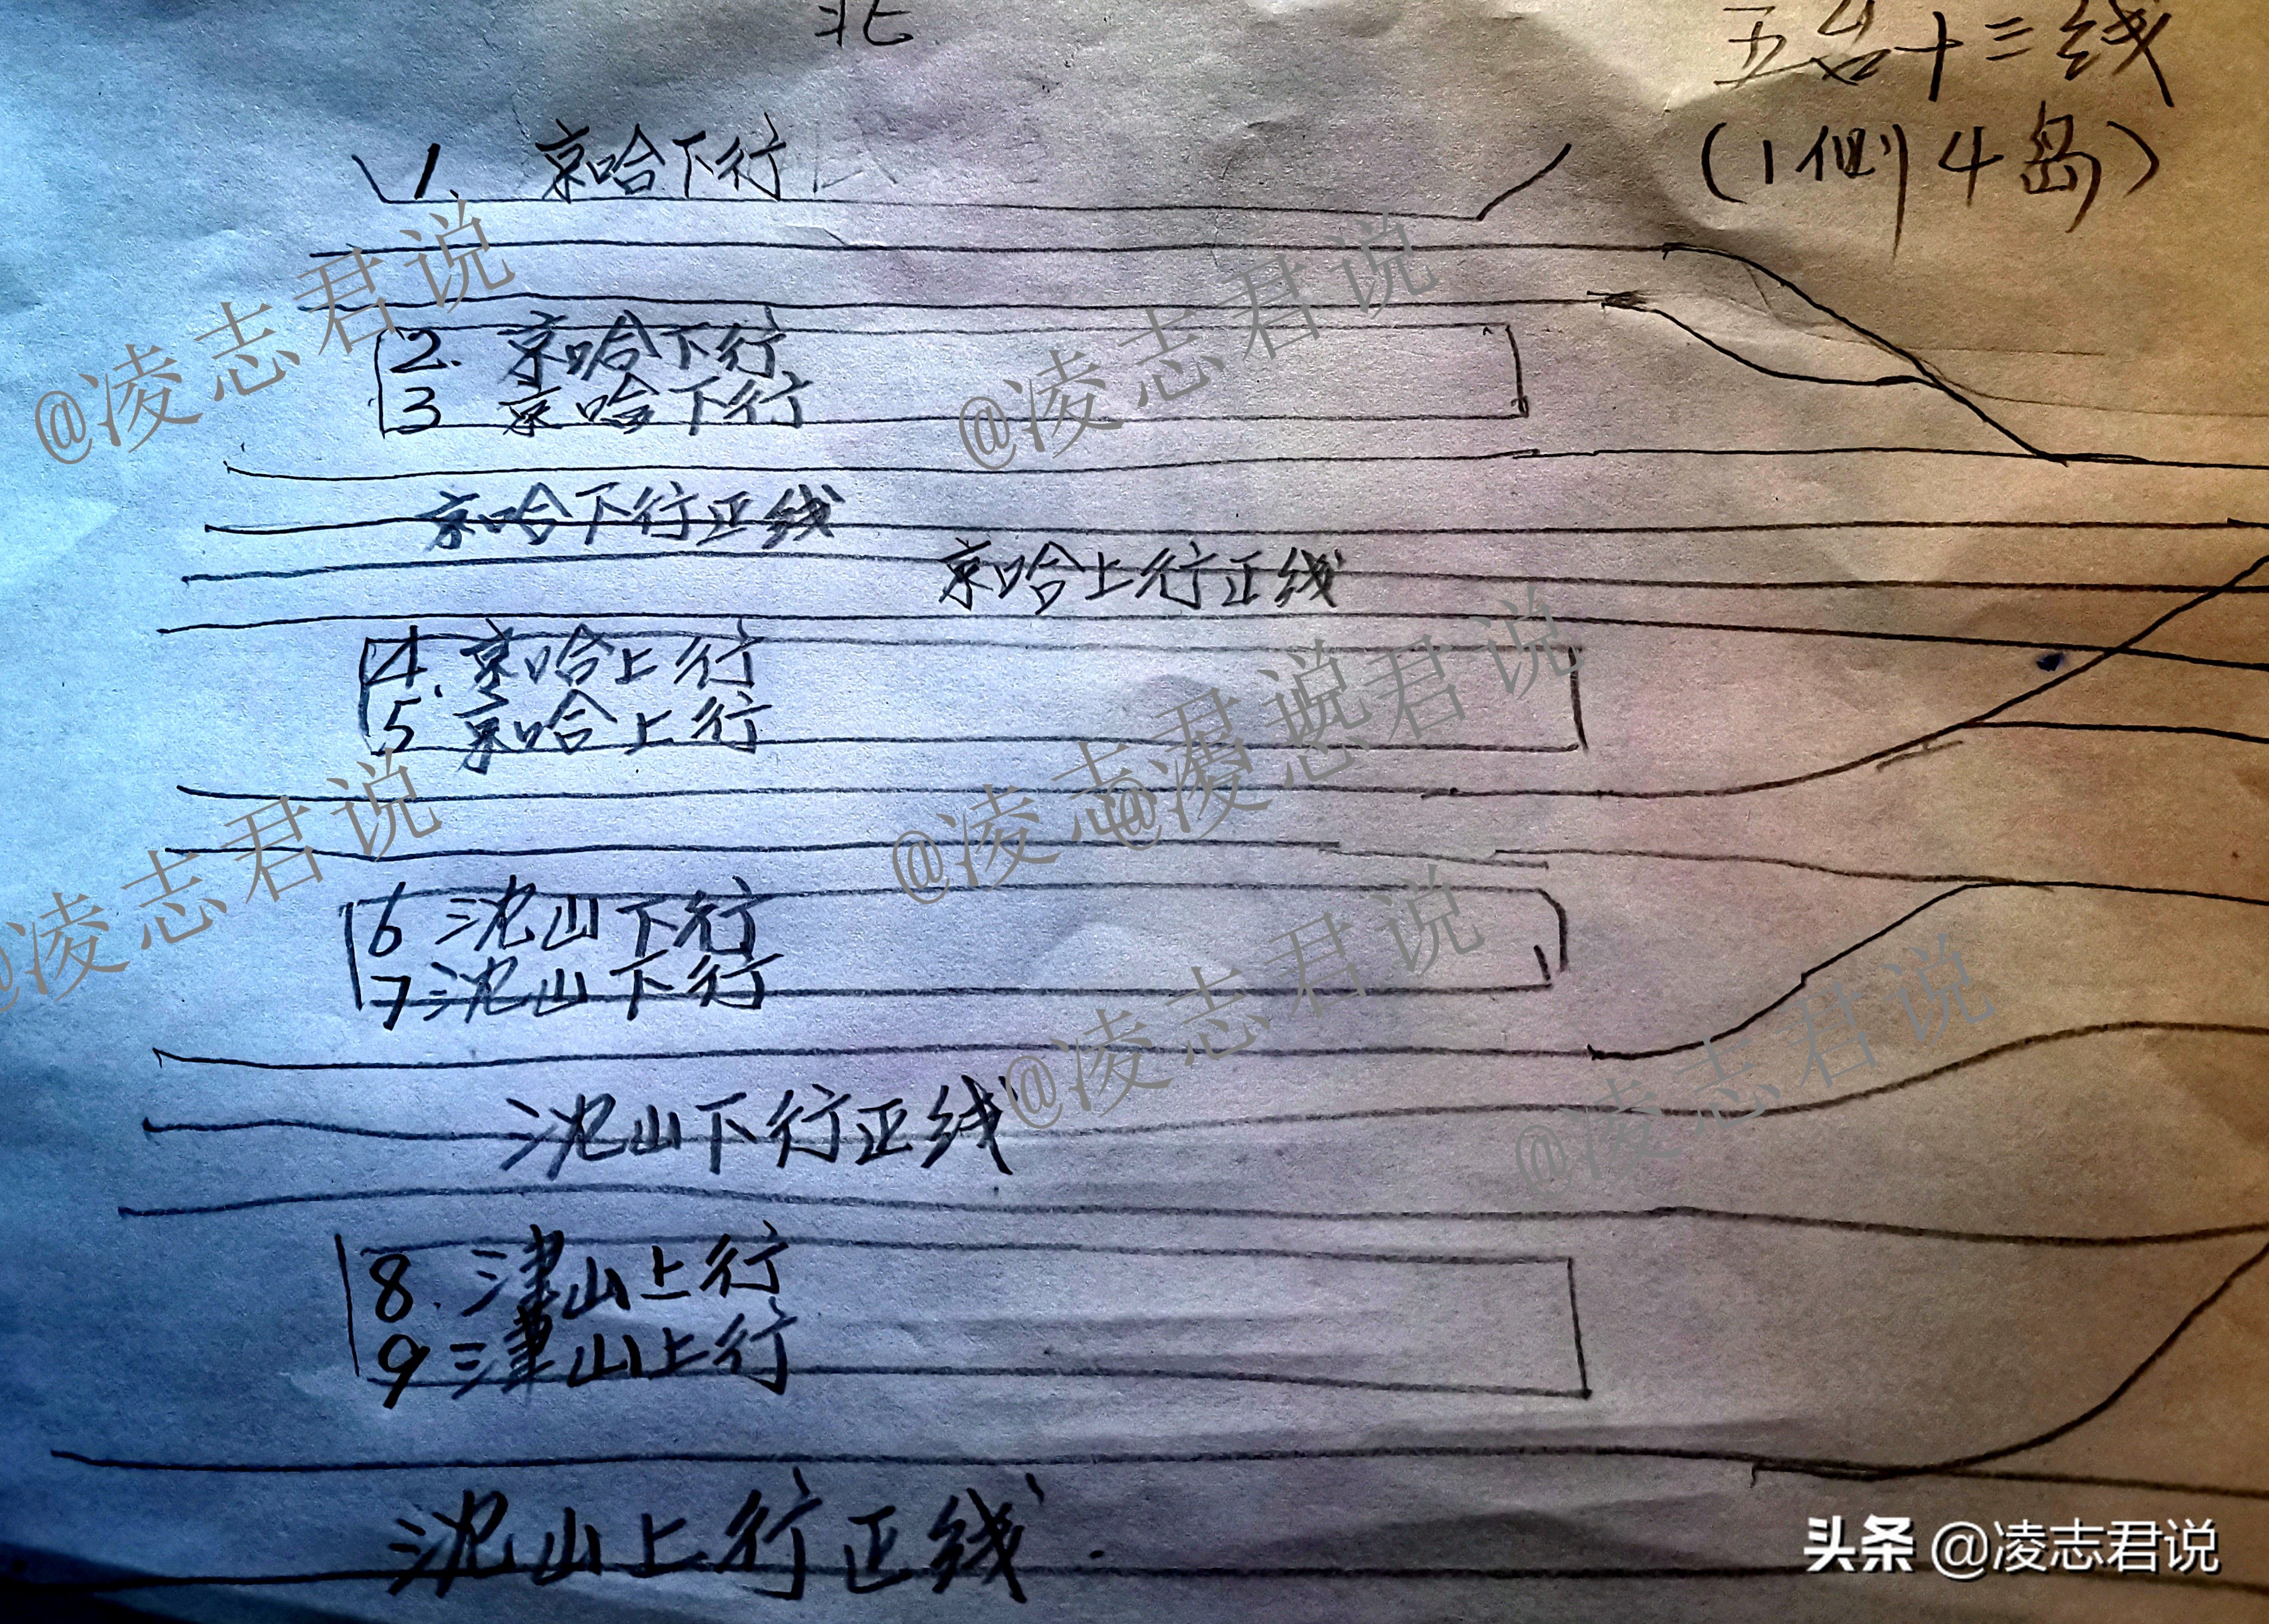 北
五台十三线
(1侧4岛)
1. 京哈下行
2. 京哈下行
3 京哈下行
京哈下行正线
京哈上行正线
4. 京哈上行
5. 京哈上行
6 沈山下行
7 沈山下行
沈山下行正线
8. 津山上行
9 津山上行
沈山上行正线.
@凌志君说
@凌志君说
@凌志君说
@凌志君说
@凌志君说
@凌志君说
@凌志君说
头条 @凌志君说